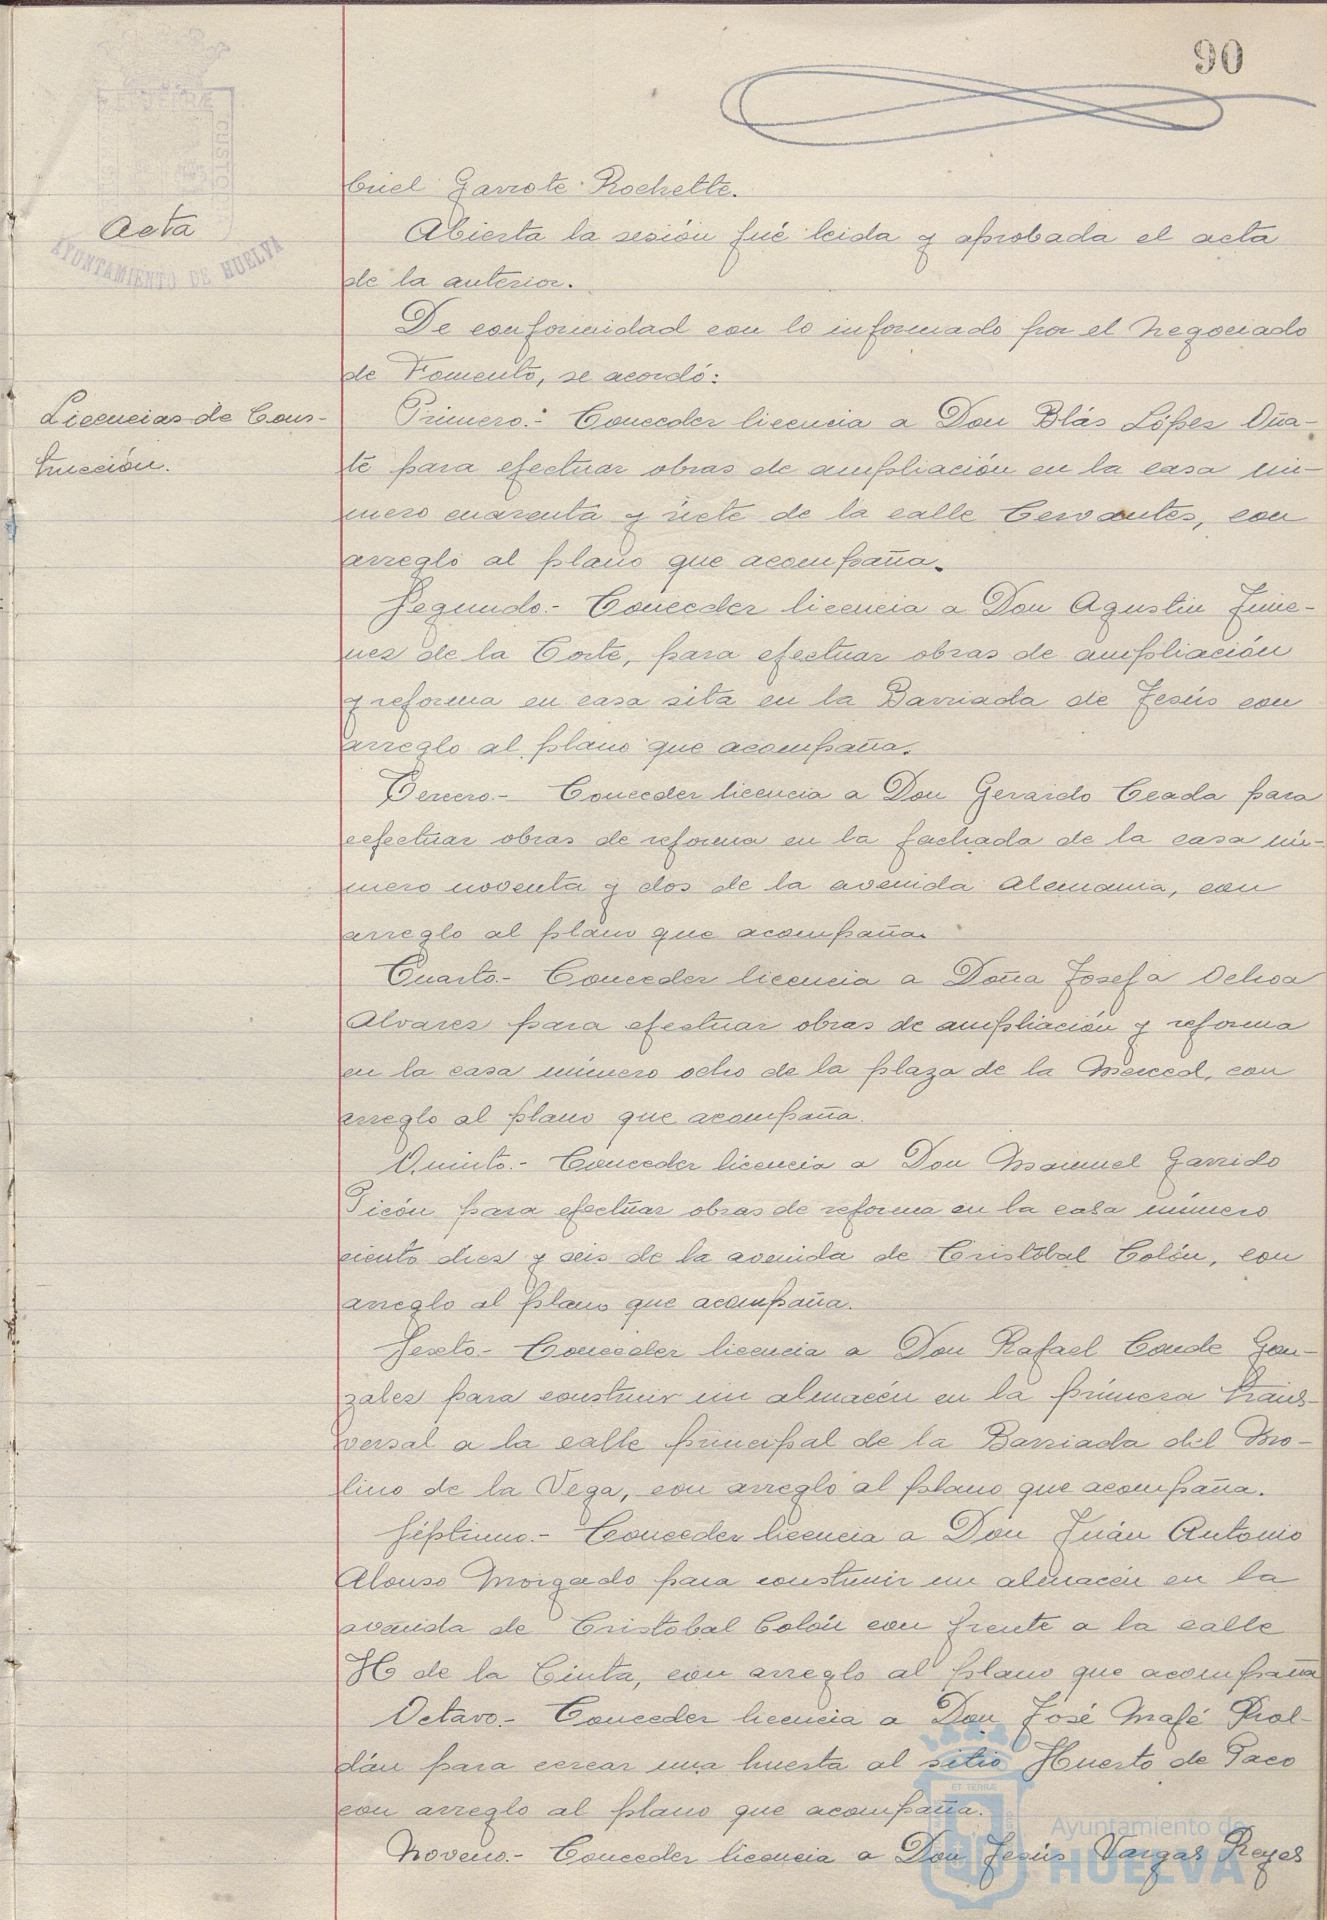 90
briel Garrote Rochette.
Acta
Abierta la sesión fué leida y aprobada el acta
AYUNTAMIENTO DE HUELVA
de la anterior.
De conformidad con lo informado por el Negociado
de Fomento, se acordó:
Licencias de Cons-
trucción.
Primero.- Conceder licencia a Don Blás López Oña-
te para efectuar obras de ampliación en la casa nú-
mero cuarenta y siete de la calle Cervantes, con
arreglo al plano que acompaña.
Segundo.- Conceder licencia a Don Agustin Jime-
nez de la Corte, para efectuar obras de ampliación
y reforma en casa sita en la Barriada de Jesús con
arreglo al plano que acompaña.
Tercero.- Conceder licencia a Don Gerardo Ceada para
eefectuar obras de reforma en la fachada de la casa nú-
mero noventa y dos de la avenida Alemania, con
arreglo al plano que acompaña.
Cuarto.- Conceder licencia a Doña Josefa Ochoa
Alvarez para efectuar obras de ampliación y reforma
en la casa número ocho de la plaza de la Merced, con
arreglo al plano que acompaña.
Quinto.- Conceder licencia a Don Manuel Garrido
Picón para efectuar obras de reforma en la casa número
ciento diez y seis de la avenida de Cristóbal Colón, con
arreglo al plano que acompaña.
Sexto.- Conceder licencia a Don Rafael Conde Gon-
zalez para construir un almacén en la primera trans-
versal a la calle principal de la Barriada del Mo-
lino de la Vega, con arreglo al plano que acompaña.
Séptimo.- Conceder licencia a Don Juán Antonio
Alonso Morgado para construir un almacén en la
avenida de Cristobal Colón con frente a la calle
H de la Cinta, con arreglo al plano que acompaña
Octavo.- Conceder licencia a Don José Mafé Rol-
dán para cercar una huerta al sitio Huerto de Paco
con arreglo al plano que acompaña.
Noveno.- Conceder licencia a Don Jesús Vargas Reyes
ET TERRÆ
Ayuntamiento de
HUELVA